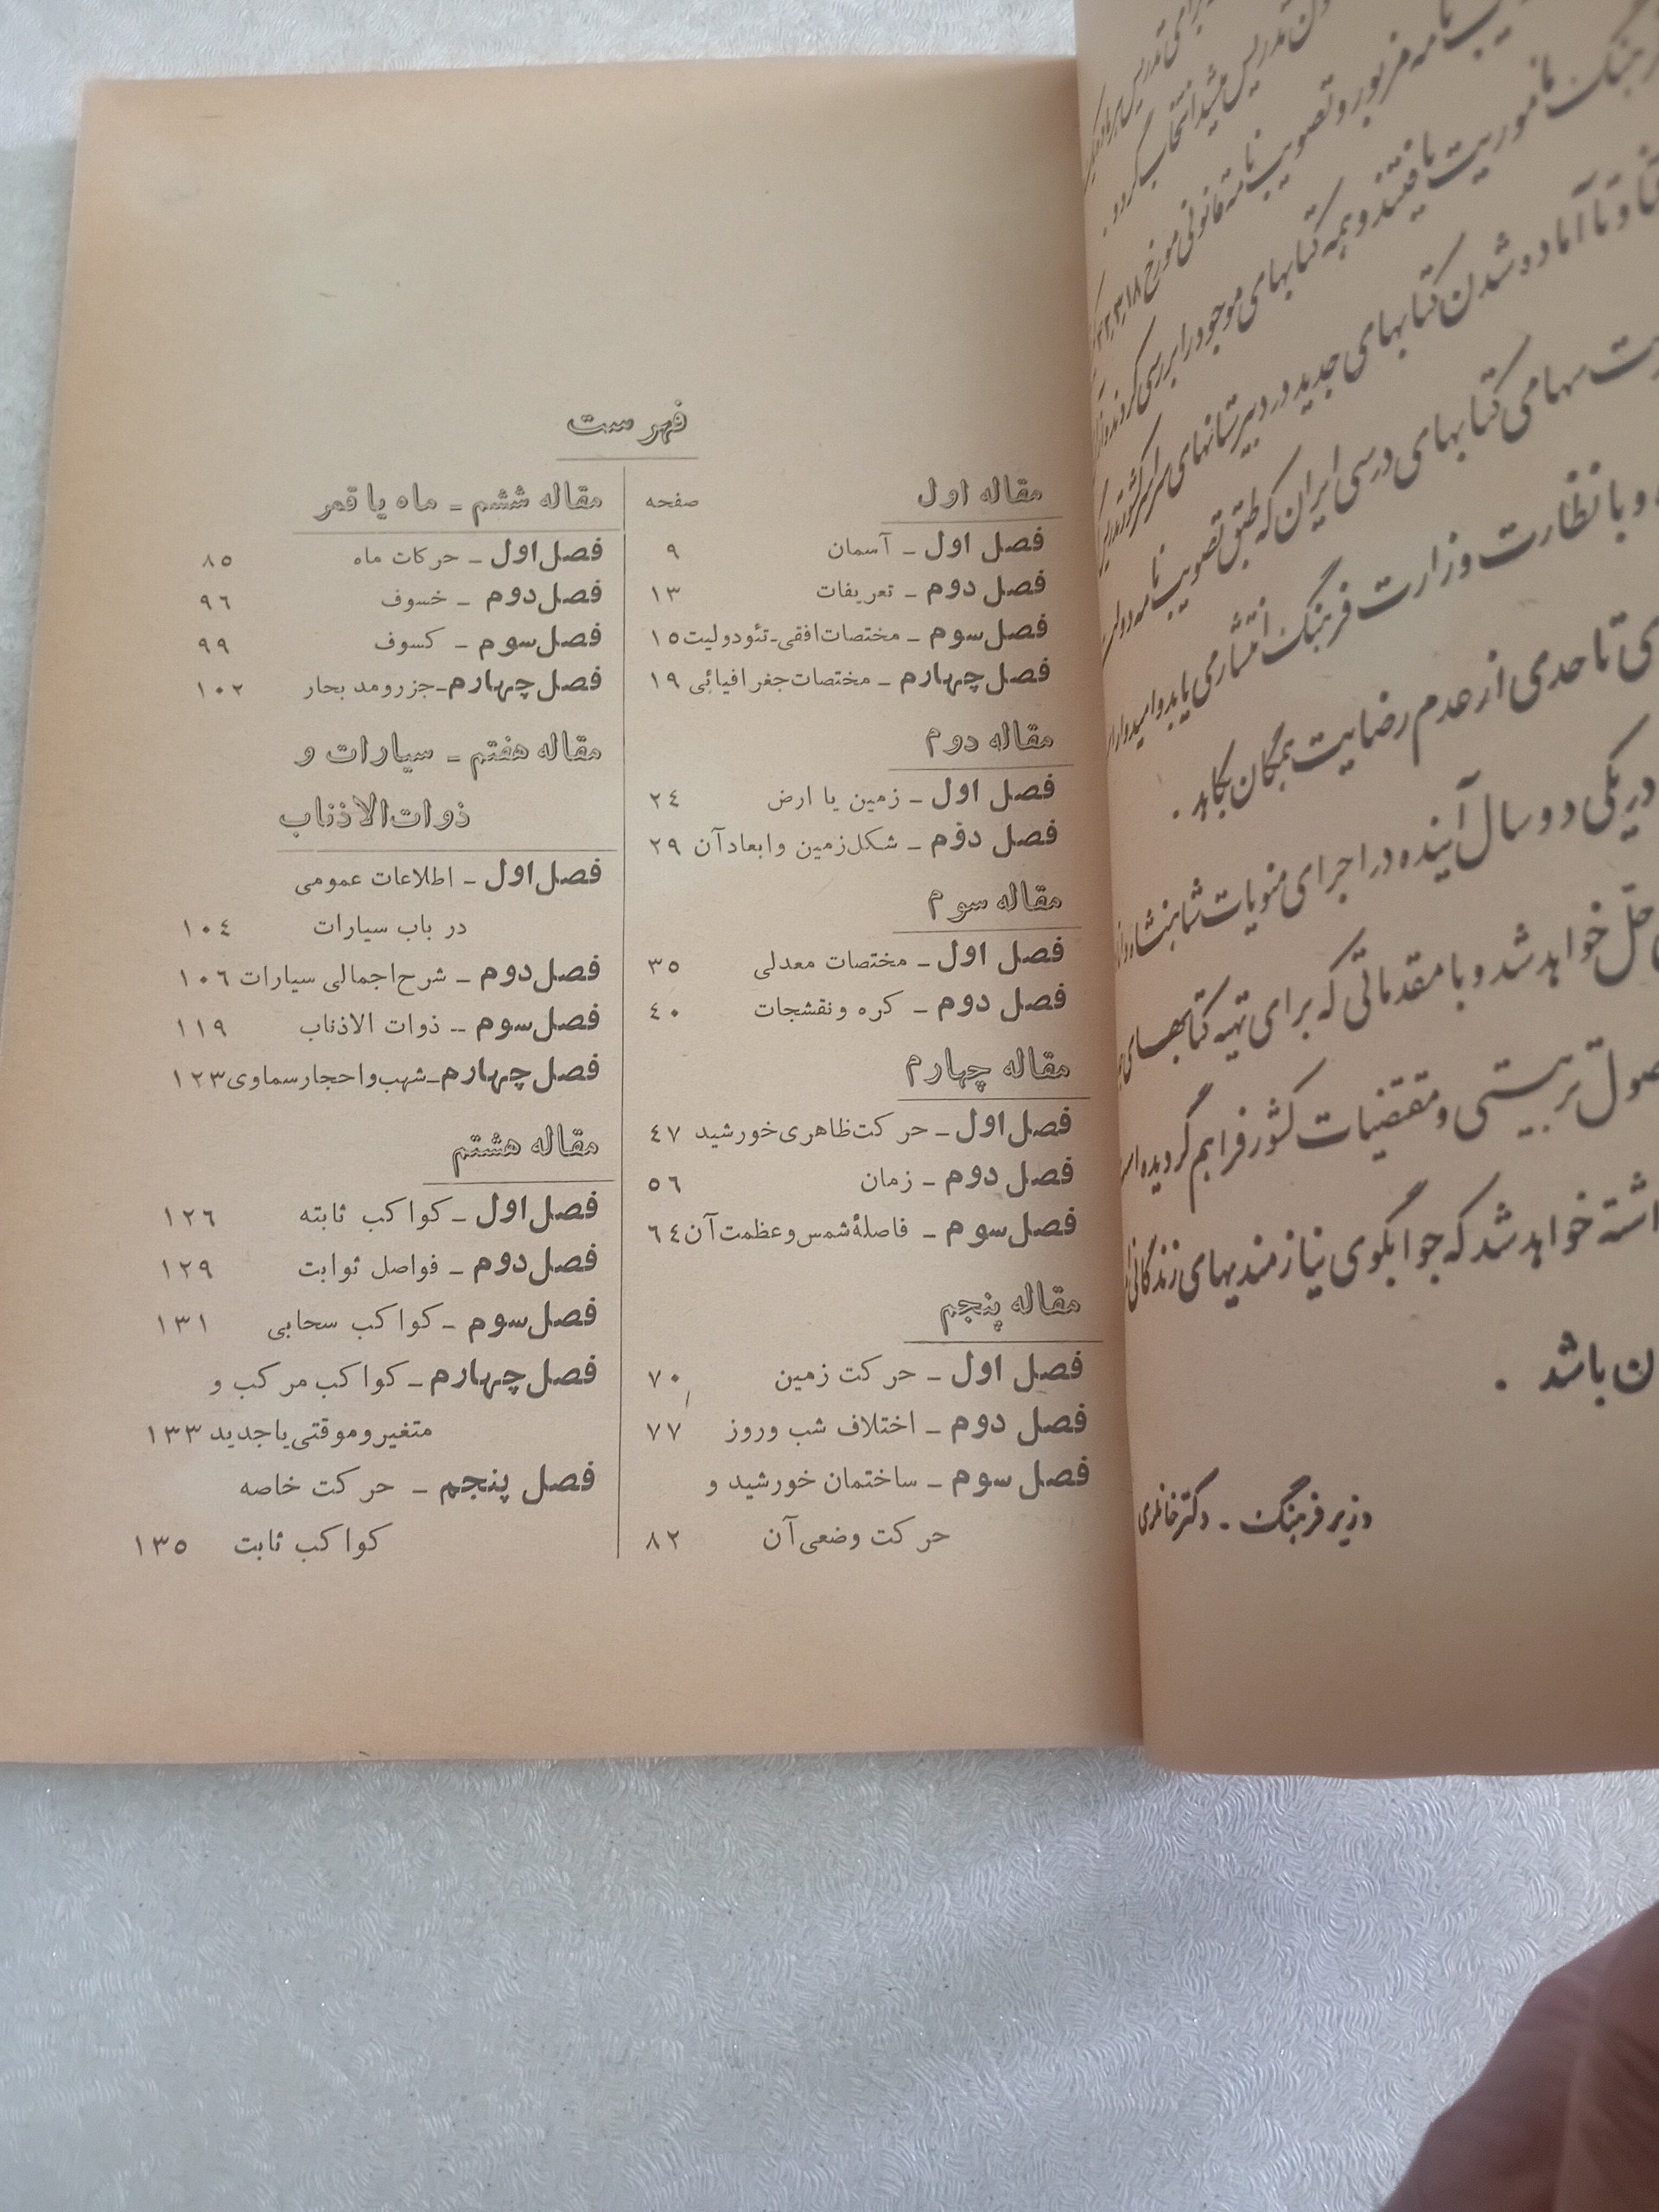 تدریس میشد انتخاب گردد.
مزبور و تصویب نامهٔ قانونی مورخ
مأموریت یافتند و همه کتابهای موجود را بررسی کردند و از
و تا آماده شدن کتابهای جدید در دبیرستانهای سراسر کشور تدریس
سهامی کتابهای درسی ایران که طبق تصویب نامه دولت
و با نظارت وزارت فرهنگ انتشار می یابد و امیدوارم
تا حدی از عدم رضایت همگان بکاهد.
در یکی دو سال آینده در اجرای منویات شاهنشاه
حلّ خواهد شد و با مقدماتی که برای تهیه کتابهای
تربیتی و مقتضیات کشور فراهم گردیده
خواهد شد که جوابگوی نیازمندیهای زندگانی
باشد.
وزیر فرهنگ - دکتر خانلری
فهرست
مقاله اول صفحه
فصل اول - آسمان ۹
فصل دوم - تعریفات ۱۳
فصل سوم - مختصات افقی-تئودولیت ۱۵
فصل چهارم - مختصات جغرافیائی ۱۹
مقاله دوم
فصل اول - زمین یا ارض ۲۴
فصل دوم - شکل زمین و ابعاد آن ۲۹
مقاله سوم
فصل اول - مختصات معدلی ۳۵
فصل دوم - کره و نقشجات ۴۰
مقاله چهارم
فصل اول - حرکت ظاهری خورشید ۴۷
فصل دوم - زمان ۵۶
فصل سوم - فاصلهٔ شمس و عظمت آن ۶۴
مقاله پنجم
فصل اول - حرکت زمین ۷۰
فصل دوم - اختلاف شب و روز ۷۷
فصل سوم - ساختمان خورشید و
حرکت وضعی آن ۸۲
مقاله ششم - ماه یا قمر
فصل اول - حرکات ماه ۸۵
فصل دوم - خسوف ۹۶
فصل سوم - کسوف ۹۹
فصل چهارم - جزرومد بحار ۱۰۲
مقاله هفتم - سیارات و
ذوات الاذناب
فصل اول - اطلاعات عمومی
در باب سیارات ۱۰۴
فصل دوم - شرح اجمالی سیارات ۱۰۶
فصل سوم - ذوات الاذناب ۱۱۹
فصل چهارم - شهب و احجار سماوی ۱۲۳
مقاله هشتم
فصل اول - کواکب ثابته ۱۲۶
فصل دوم - فواصل ثوابت ۱۲۹
فصل سوم - کواکب سحابی ۱۳۱
فصل چهارم - کواکب مرکب و
متغیر و موقتی یا جدید ۱۳۳
فصل پنجم - حرکت خاصه
کواکب ثابت ۱۳۵